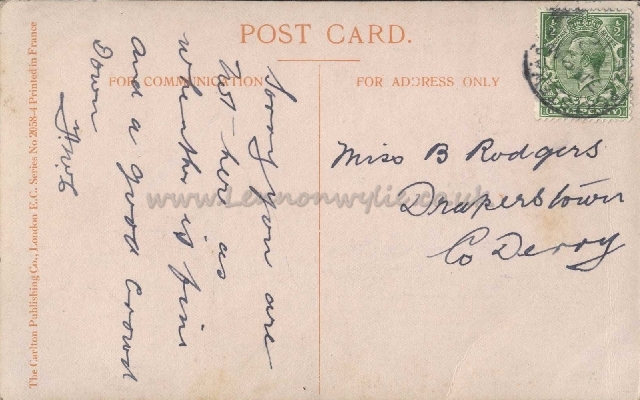 POST CARD.
FOR COMMUNICATION
FOR ADDRESS ONLY
Sorry you are
not her as
whether is fine
and a good crowd
Down
Miss B Rodgers
Draperstown
Co Derry
www.Lennonwylie.co.uk
The Carlton Publishing Co., London E.C. Series No 2658-4 Printed in France